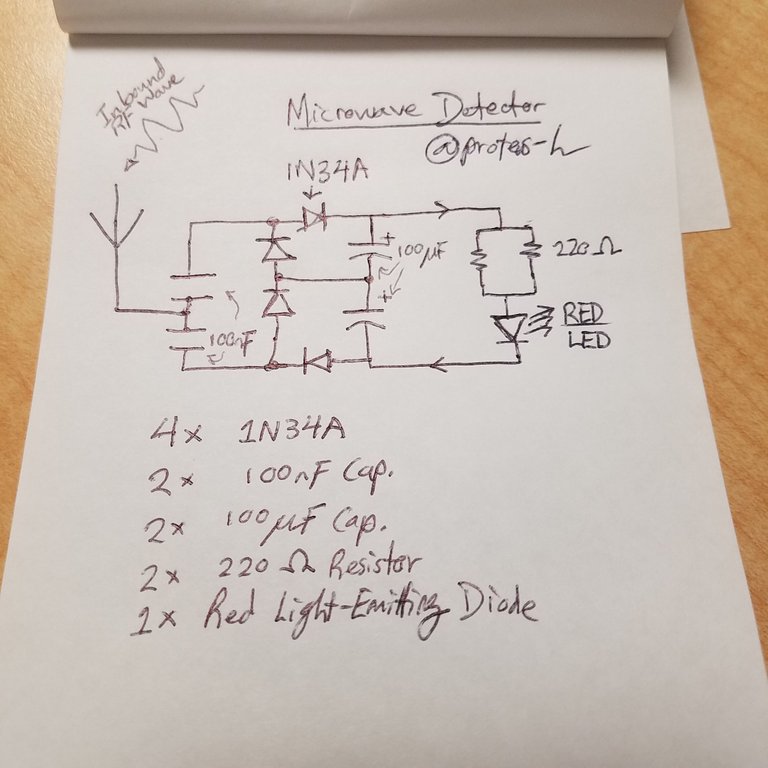 Inbound
RF Wave
Microwave Detector
1N34A
+
100μF
220Ω
+
100nF
RED
LED
4x 1N34A
2x 100nF Cap.
2x 100μF Cap.
2x 220 Ω Resistor
1x Red Light-Emitting Diode